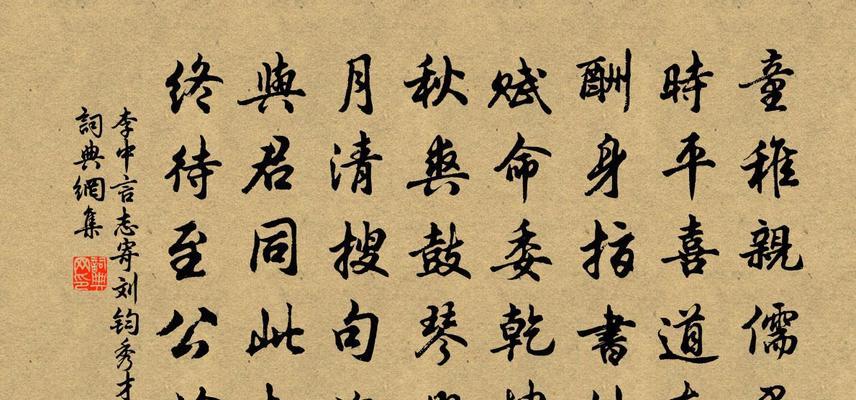 童稚親儒
時平喜道
酬身指書
賦命委乾
秋爽鼓琴
月清搜句
與君同此
終待至公
李中言志寄刘鈞秀才
詞典網集
詞典
网印